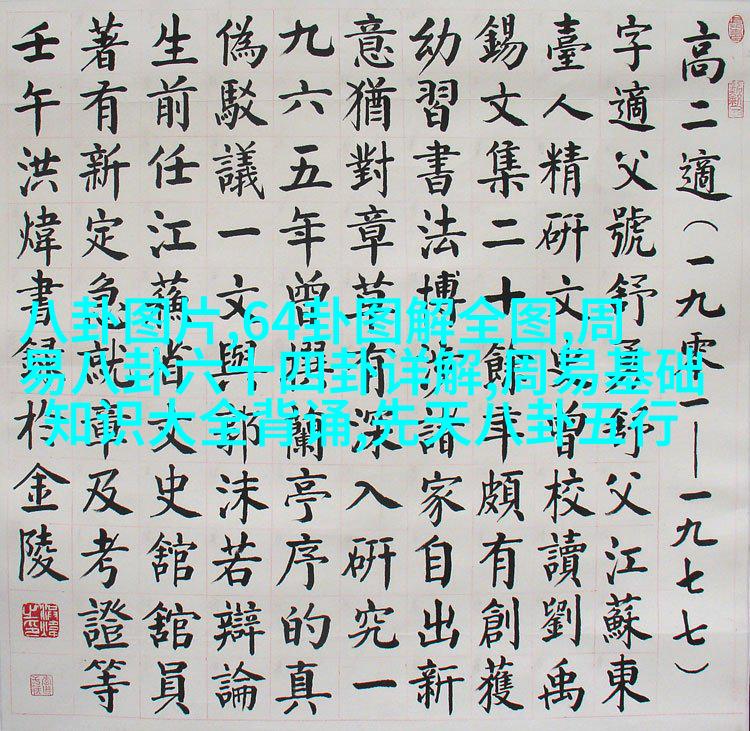 高二適（一九零一——一九七七）
字適父號舒舒父江蘇東
臺人精研文史曾校讀劉禹
錫文集二十餘年頗有創獲
幼習書法博涉諸家自出新
意猶對章草有深入研究一
九六五年曾撰蘭亭序的真
偽駁議一文與郭沫若辯論
生前任江蘇省文史舘舘員
著有新定急就章及考證等
壬午洪煒書録於金陵
八卦图片,64卦图解全图,周
易八卦六十四卦详解,周易基础
知识大全背诵,先天八卦五行